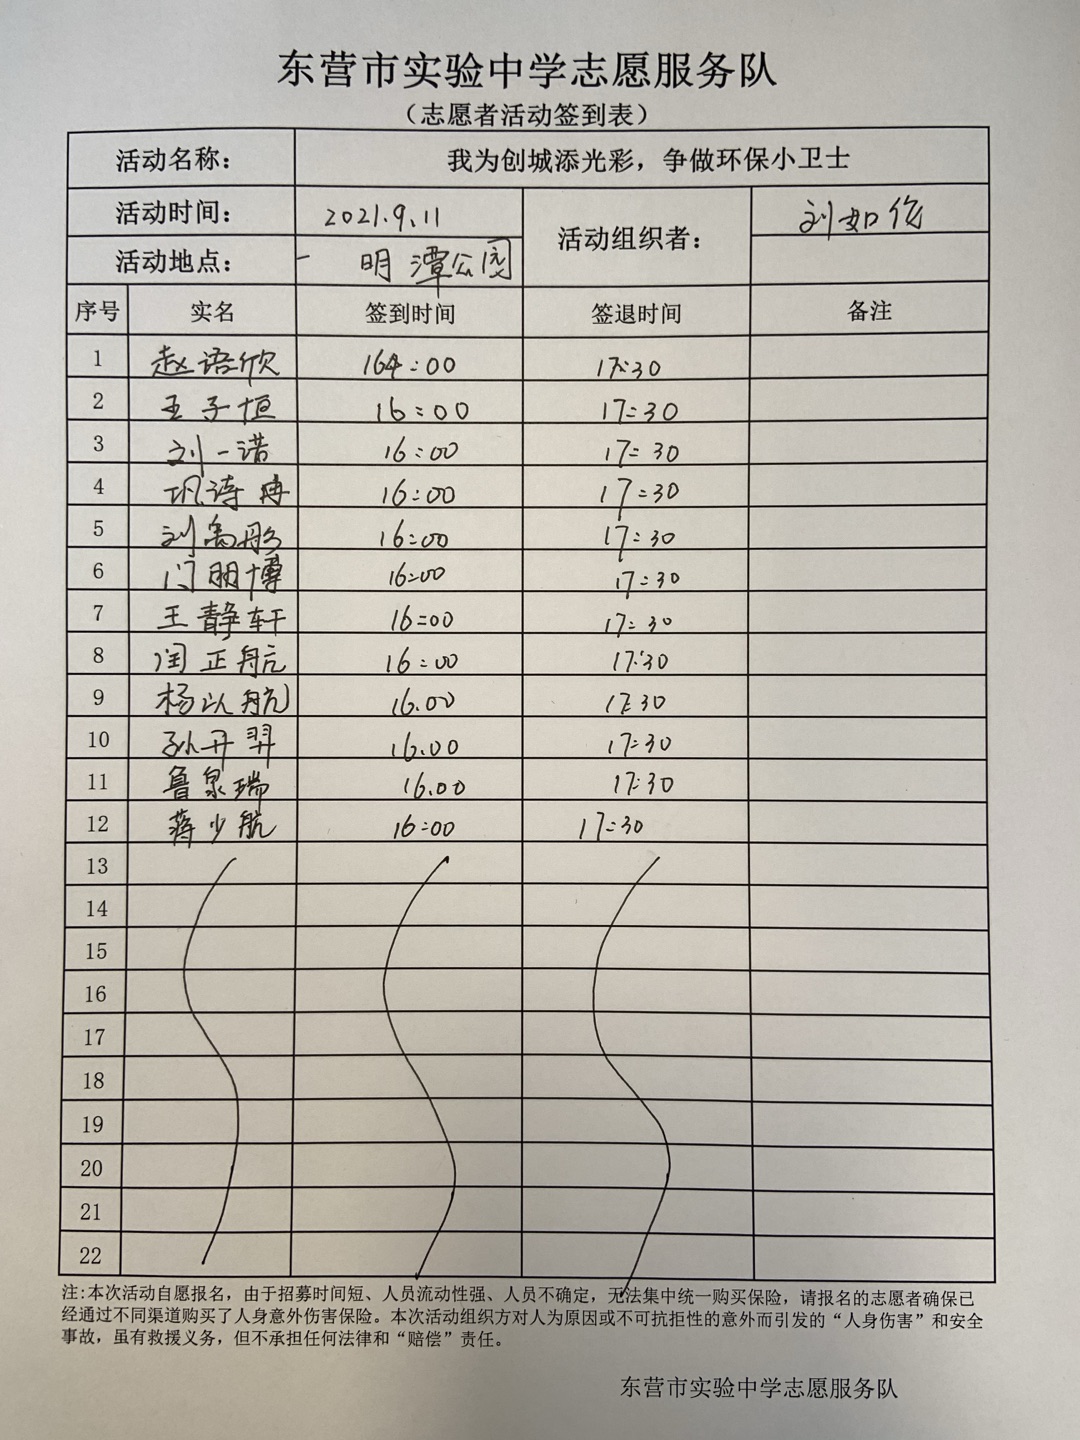 东营市实验中学志愿服务队
（志愿者活动签到表）
活动名称： 我为创城添光彩，争做环保小卫士
活动时间： 2021.9.11 活动组织者： 刘如
活动地点： 明潭公园
序号 实名 签到时间 签退时间 备注
1 赵语欣 16:00 17:30
2 王子恒 16:00 17:30
3 刘一诺 16:00 17:30
4 巩诗冉 16:00 17:30
5 刘禹彤 16:00 17:30
6 门朋博 16:00 17:30
7 王静轩 16:00 17:30
8 闰正航 16:00 17:30
9 杨以航 16.00 17:30
10 孙丹羿 16.00 17:30
11 鲁泉瑞 16.00 17:30
12 蒋少航 16:00 17:30
13
14
15
16
17
18
19
20
21
22
注:本次活动自愿报名，由于招募时间短、人员流动性强、人员不确定，无法集中统一购买保险，请报名的志愿者确保已
经通过不同渠道购买了人身意外伤害保险。本次活动组织方对人为原因或不可抗拒性的意外而引发的“人身伤害”和安全
事故，虽有救援义务，但不承担任何法律和“赔偿”责任。
东营市实验中学志愿服务队